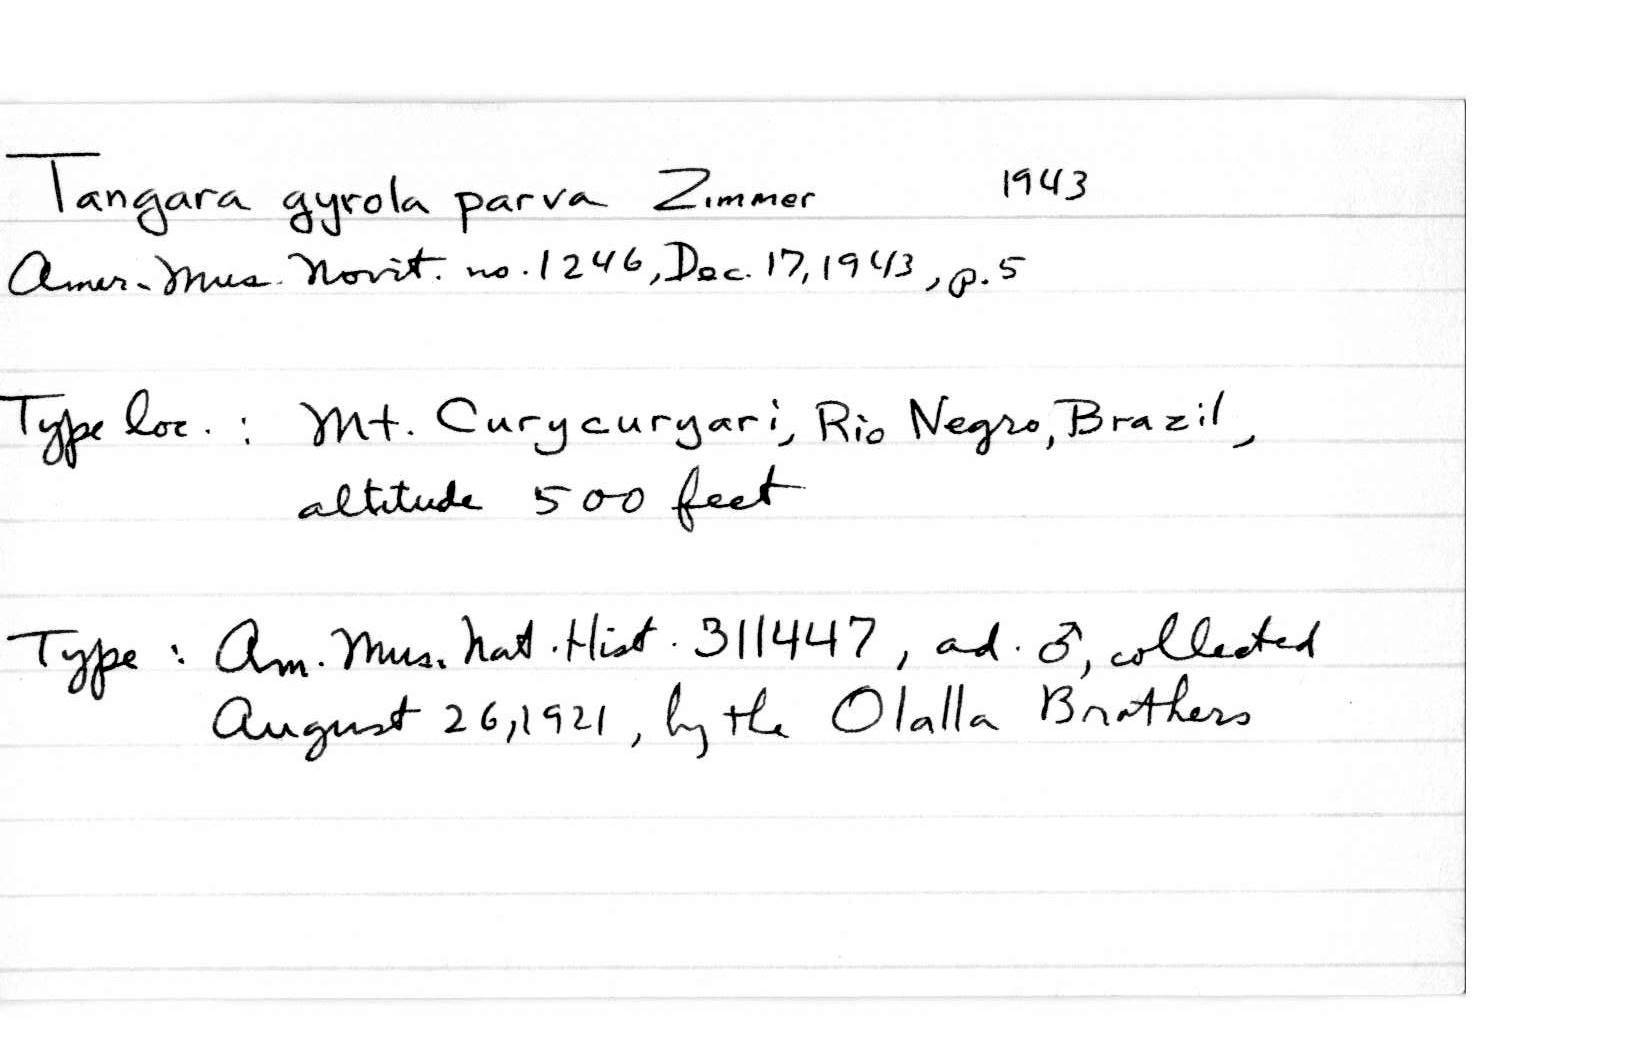 Tangara gyrola parva Zimmer 1943
Amer. Mus. Novit. no. 1246, Dec. 17, 1943, p. 5
Type loc. : Mt. Curycuryari, Rio Negro, Brazil,
altitude 500 feet
Type : Am. Mus. Nat. Hist. 311447, ad. ♂, collected
August 26, 1921, by the Olalla Brothers